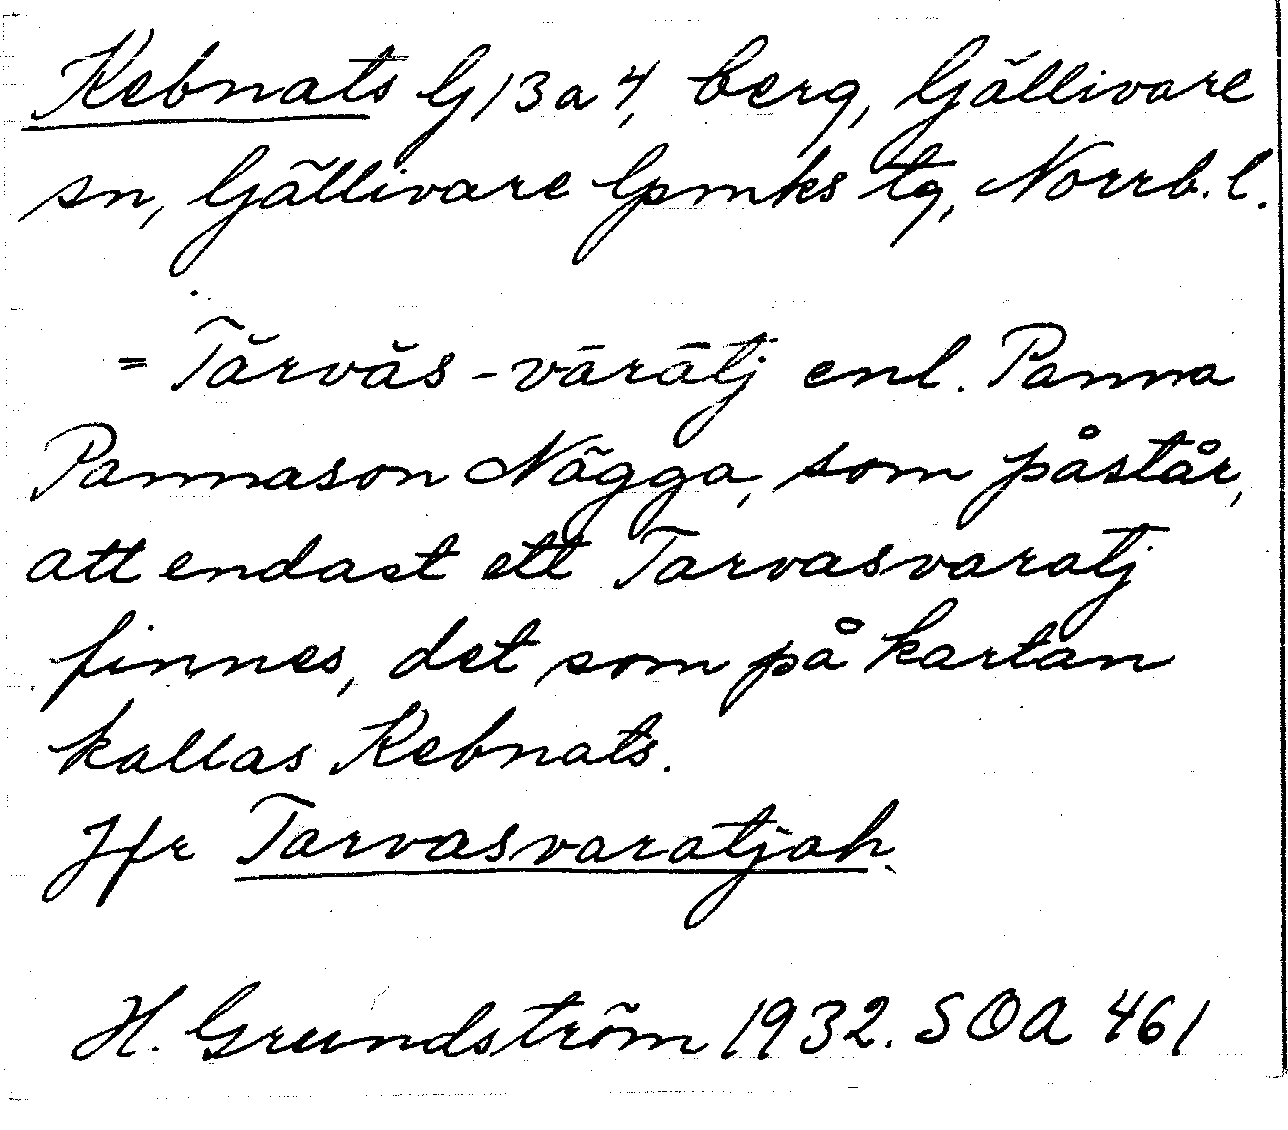 Kebnats G13a4, berg, Gällivare
sn, Gällivare lpmks tg, Norrb. l.
= Tărvăs-vārātj enl. Panna
Pannason Nägga, som påstår,
att endast ett Tarvasvaratj
finnes, det som på kartan
kallas Kebnats.
Jfr Tarvasvaratjah.
H. Grundström 1932. SOA 461